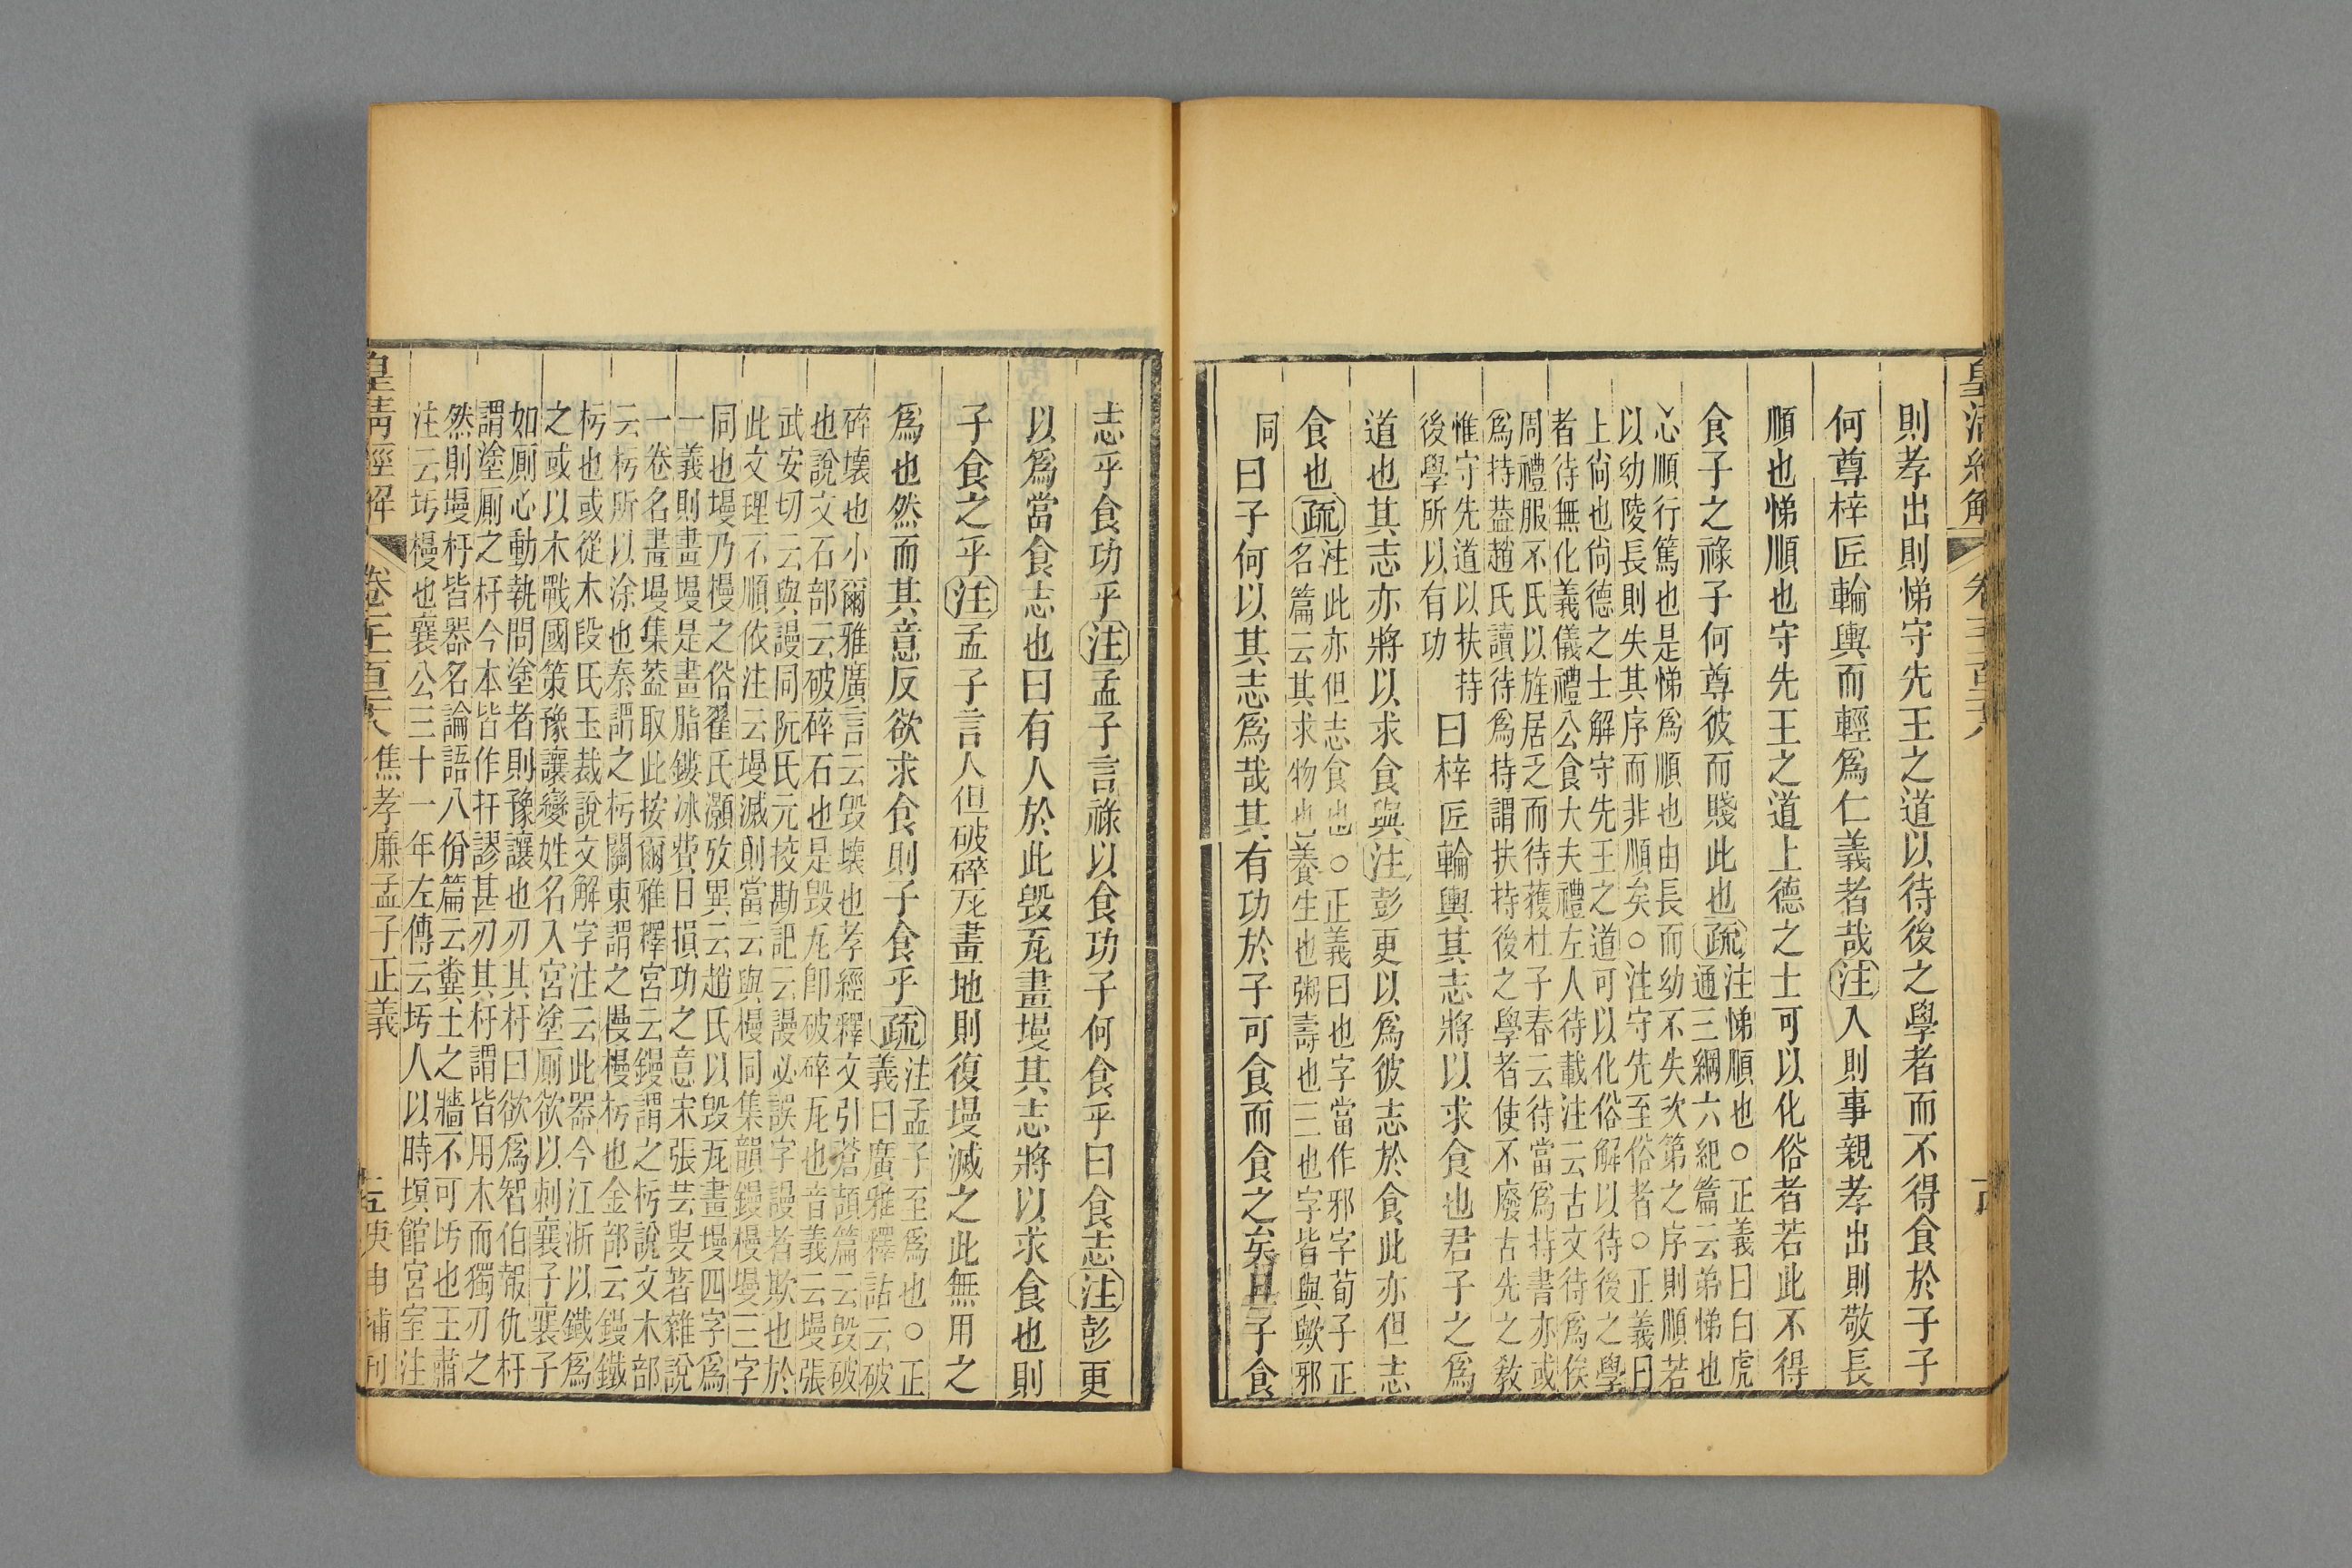 皇清經解
則孝出則悌守先王之道以待後之學者而不得食於子子
何尊梓匠輪輿而輕爲仁義者哉注入則事親孝出則敬長
順也悌順也守先王之道上德之士可以化俗者若此不得
食子之祿子何尊彼而賤此也疏注悌順也○正義曰白虎
通三綱六紀篇云弟悌也
心順行篤也是悌爲順也由長而幼不失次第之序則順若
以幼陵長則失其序而非順矣○注守先至俗者○正義曰
上尙也尙德之士解守先王之道可以化俗解以待後之學
者待無化義儀禮公食大夫禮左人待載注云古文待爲俟
周禮服不氏以旌居乏而待獲杜子春云待當爲持書亦或
爲持葢趙氏讀待爲持謂扶持後之學者使不廢古先之敎
惟守先道以扶持
後學所以有功
曰梓匠輪輿其志將以求食也君子之爲
道也其志亦將以求食與注彭更以爲彼志於食此亦但志
食也疏注此亦但志食也○正義曰也字當作邪字荀子正
名篇云其求物也養生也粥壽也三也字皆與歟邪
同曰子何以其志爲哉其有功於子可食而食之矣且子食
志乎食功乎注孟子言祿以食功子何食乎曰食志注彭更
以爲當食志也曰有人於此毀瓦畫墁其志將以求食也則
子食之乎注孟子言人但破碎瓦畫地則復墁滅之此無用之
爲也然而其意反欲求食則子食乎疏注孟子至爲也○正
義曰廣雅釋詁云破
碎壞也小爾雅廣言云毀壞也孝經釋文引蒼頡篇云毀破
也說文石部云破碎石也是毀瓦卽破碎瓦也音義云墁張
武安切云與謾同阮氏元挍勘記云謾必誤字謾者欺也於
此文理不順依注云墁滅則當云與槾同集韻鏝槾墁三字
同也墁乃槾之俗翟氏灝攷異云趙氏以毀瓦畫墁四字爲
一義則畫墁是畫脂鏤冰費日損功之意宋張芸叟著雜說
一卷名畫墁集葢取此按爾雅釋宮云鏝謂之杇說文木部
云杇所以涂也秦謂之杇關東謂之槾槾杇也金部云鏝鐵
杇也或從木段氏玉裁說文解字注云此器今江浙以鐵爲
之或以木戰國策豫讓變姓名入宮塗廁欲以刺襄子襄子
如廁心動執問塗者則豫讓也刃其杅曰欲爲智伯報仇杅
謂塗廁之杅今本皆作扞謬甚刃其杅謂皆用木而獨刃之
然則墁杅皆器名論語八佾篇云糞土之牆不可圬也王肅
注云圬槾也襄公三十一年左傳云圬人以時塓館宮室注
皇清經解
焦孝廉孟子正義
庚申補刊